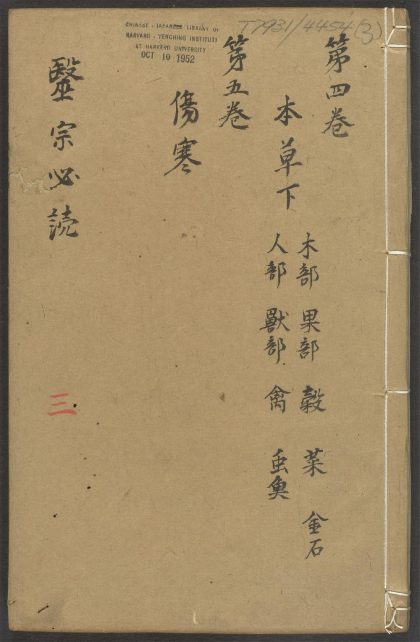 T7931/4454(3)
CHINESE - JAPANESE LIBRARY OF
HARVARD - YENCHING INSTITUTE
AT HARVARD UNIVERSITY
OCT 10 1952
第四卷
本草下
木部 果部 穀 菜 金石
人部 獸部 禽 虫魚
第五卷
傷寒
醫宗必読
三